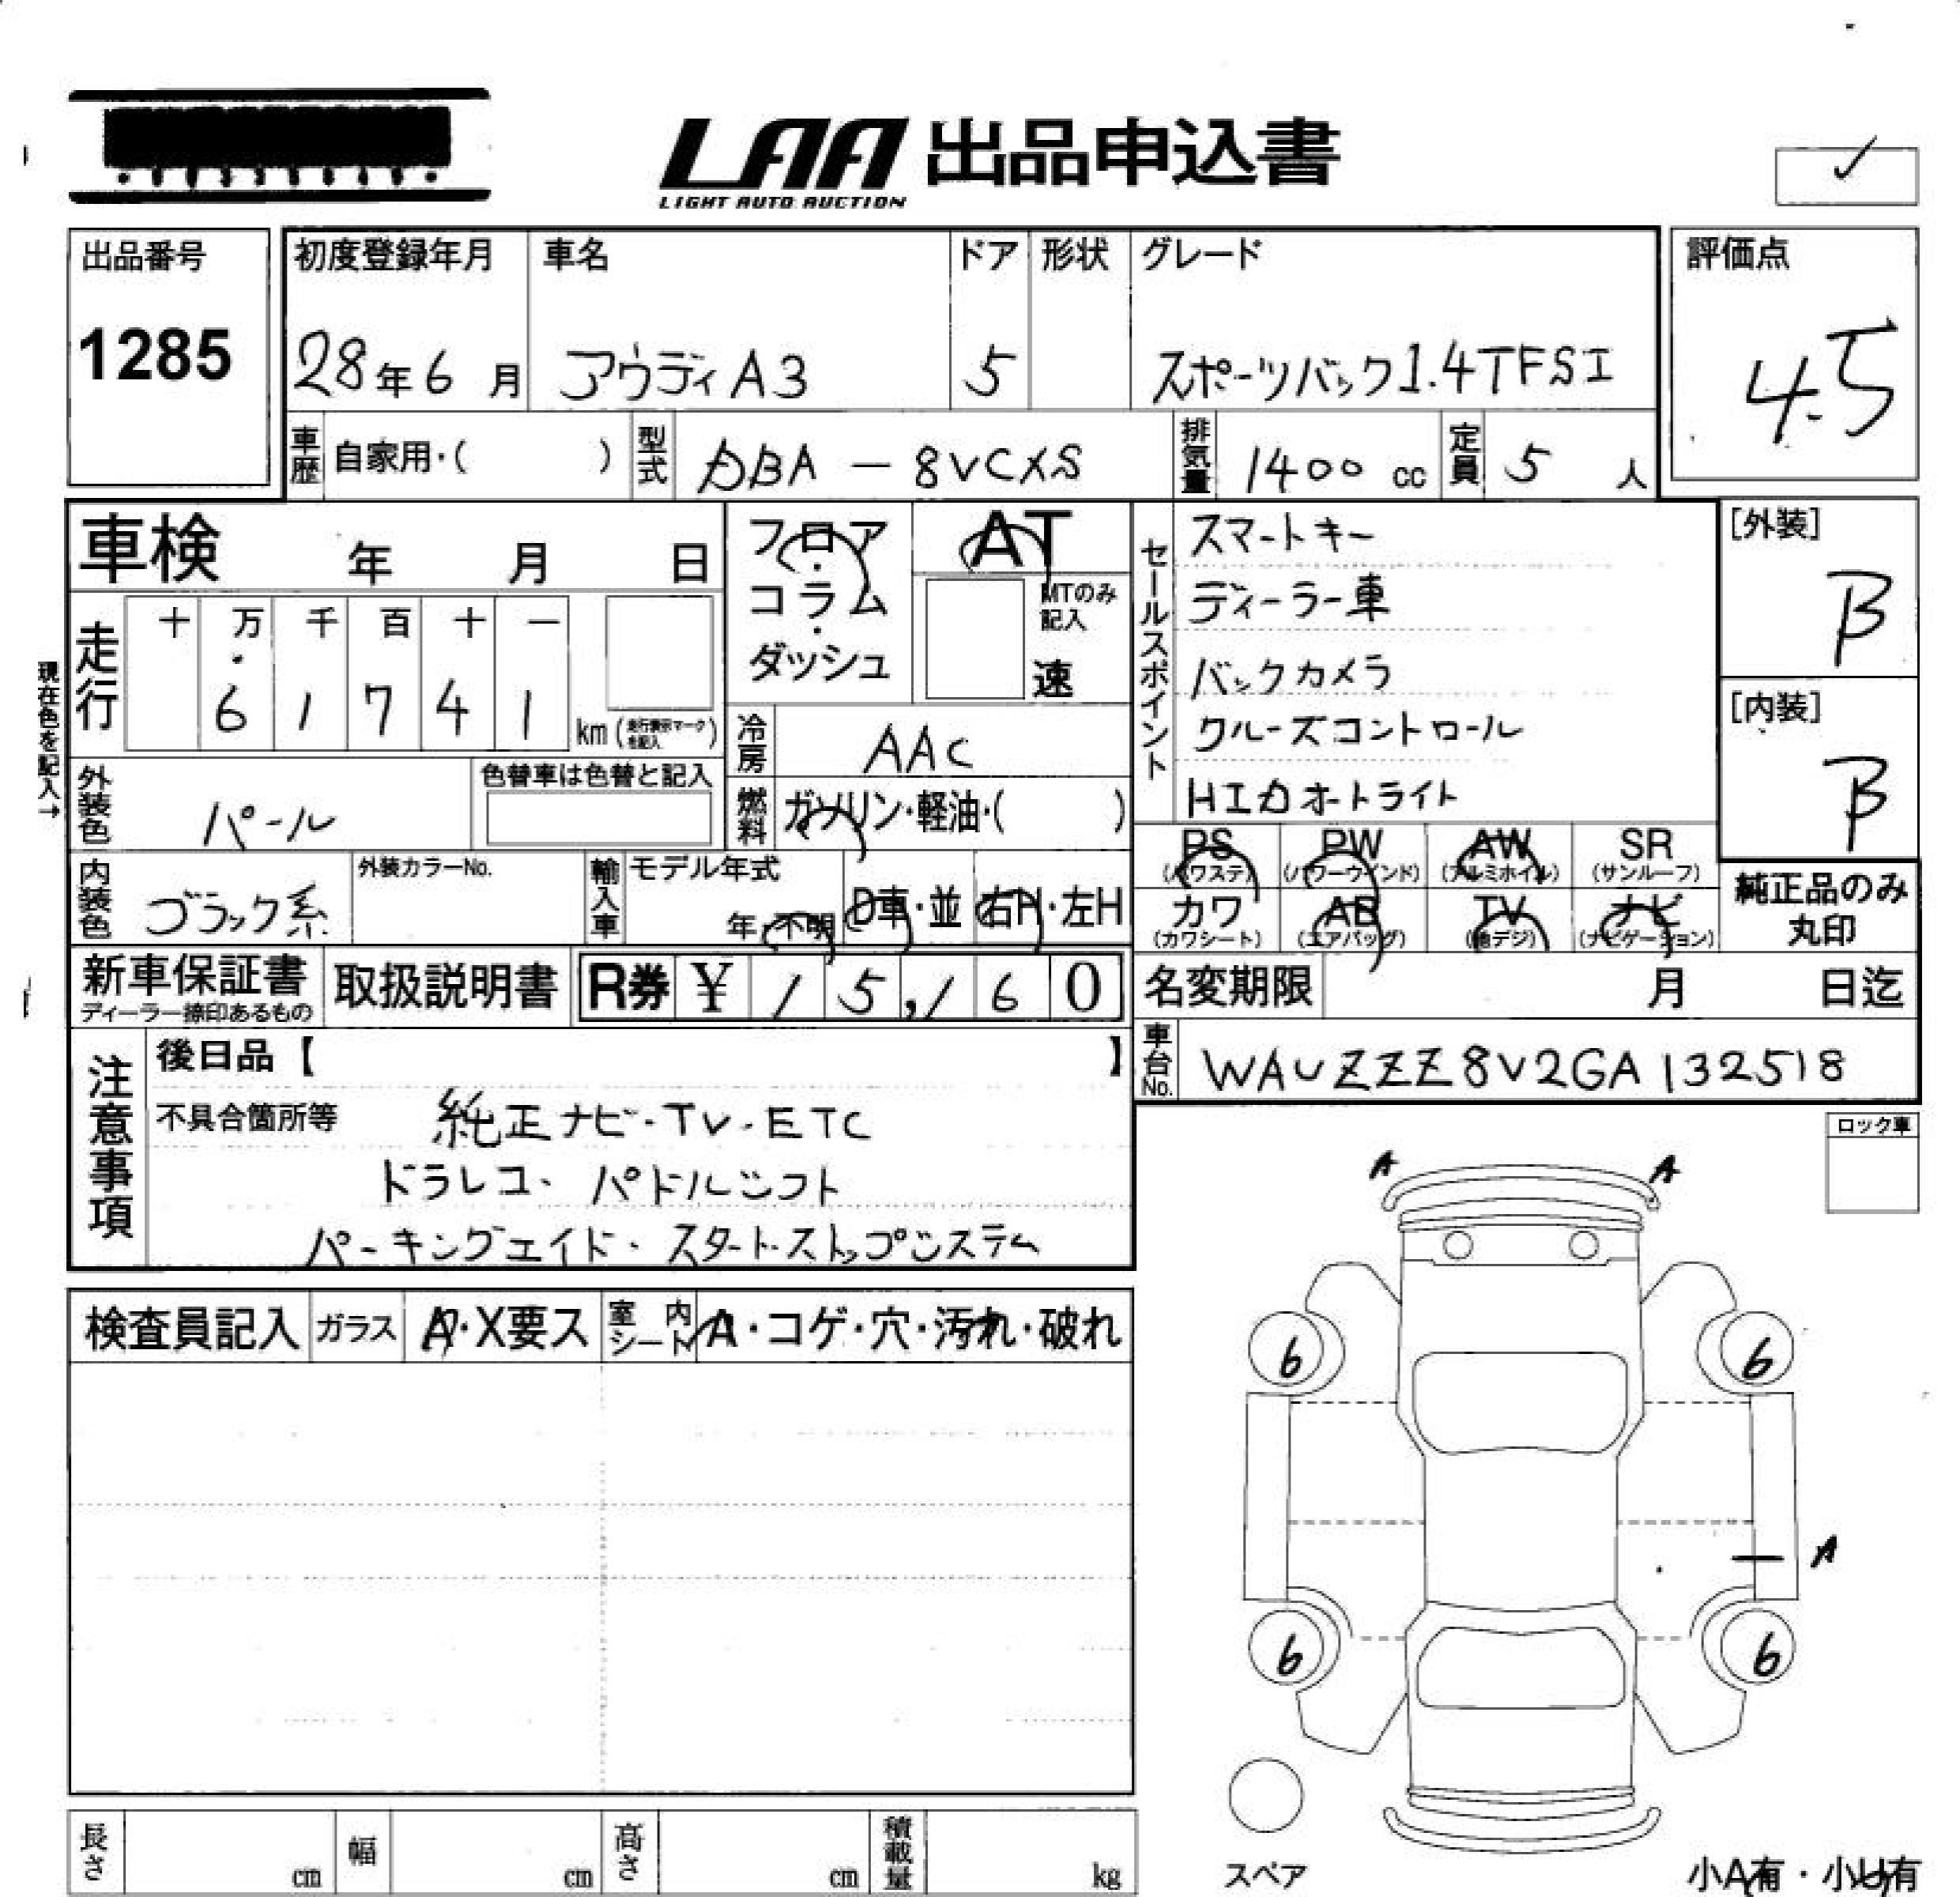 LAA 出品申込書
LIGHT AUTO AUCTION
出品番号
1285
初度登録年月 車名 ドア 形状 グレード
28年6月 アウディA3 5 スポーツバック1.4TFSI
評価点
4.5
車歴 自家用・( ) 型式 DBA-8VCXS 排気量 1400 cc 定員 5 人
車検 年 月 日
フロア・コラム・ダッシュ
AT
MTのみ記入
速
現在色を記入→
走行 十 万 千 百 十 一
6 1 7 4 1 km (走行表示マークを記入)
冷房 AAC
燃料 ガソリン・軽油・( )
外装色 パール
色替車は色替と記入
内装色 ブラック系
外装カラーNo.
輸入車 モデル年式 年・不明 D車・並 右H・左H
セールスポイント
スマートキー
ディーラー車
バックカメラ
クルーズコントロール
HIDオートライト
[外装]
B
[内装]
B
PS (パワステ) PW (パワーウインド) AW (アルミホイル) SR (サンルーフ)
カワ (カワシート) AB (エアバッグ) TV (地デジ) ナビ (ナビゲーション)
純正品のみ丸印
新車保証書 ディーラー捺印あるもの
取扱説明書
R券 ¥ 15,160
名変期限 月 日迄
車台No. WAUZZZ8V2GA132518
注意事項
後日品【 】
不具合箇所等 純正ナビ・TV・ETC
ドラレコ・パドルシフト
パーキングエイド・スタートストップシステム
ロック車
検査員記入 ガラス A・X要ス 室内シート A・コゲ・穴・汚れ・破れ
A A
6 6
A
6 6
スペア
長さ cm 幅 cm 高さ cm 積載量 kg
小A有・小U有